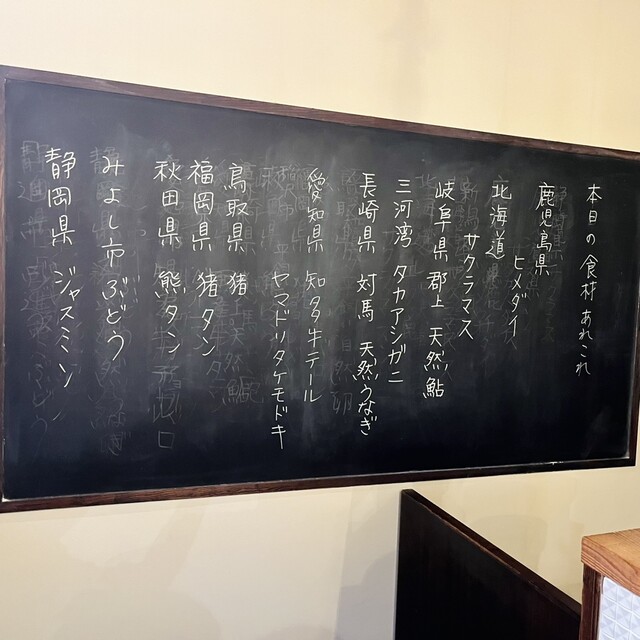 本日の食材あれこれ
鹿児島県
ヒメダイ
北海道
サクラマス
岐阜県 郡上 天然鮎
三河湾 タカアシガニ
長崎県 対馬 天然うなぎ
愛知県 知多牛テール
ヤマドリタケモドキ
鳥取県 猪
福岡県 猪タン
秋田県 熊タン
みよし市ぶどう
静岡県 ジャスミン